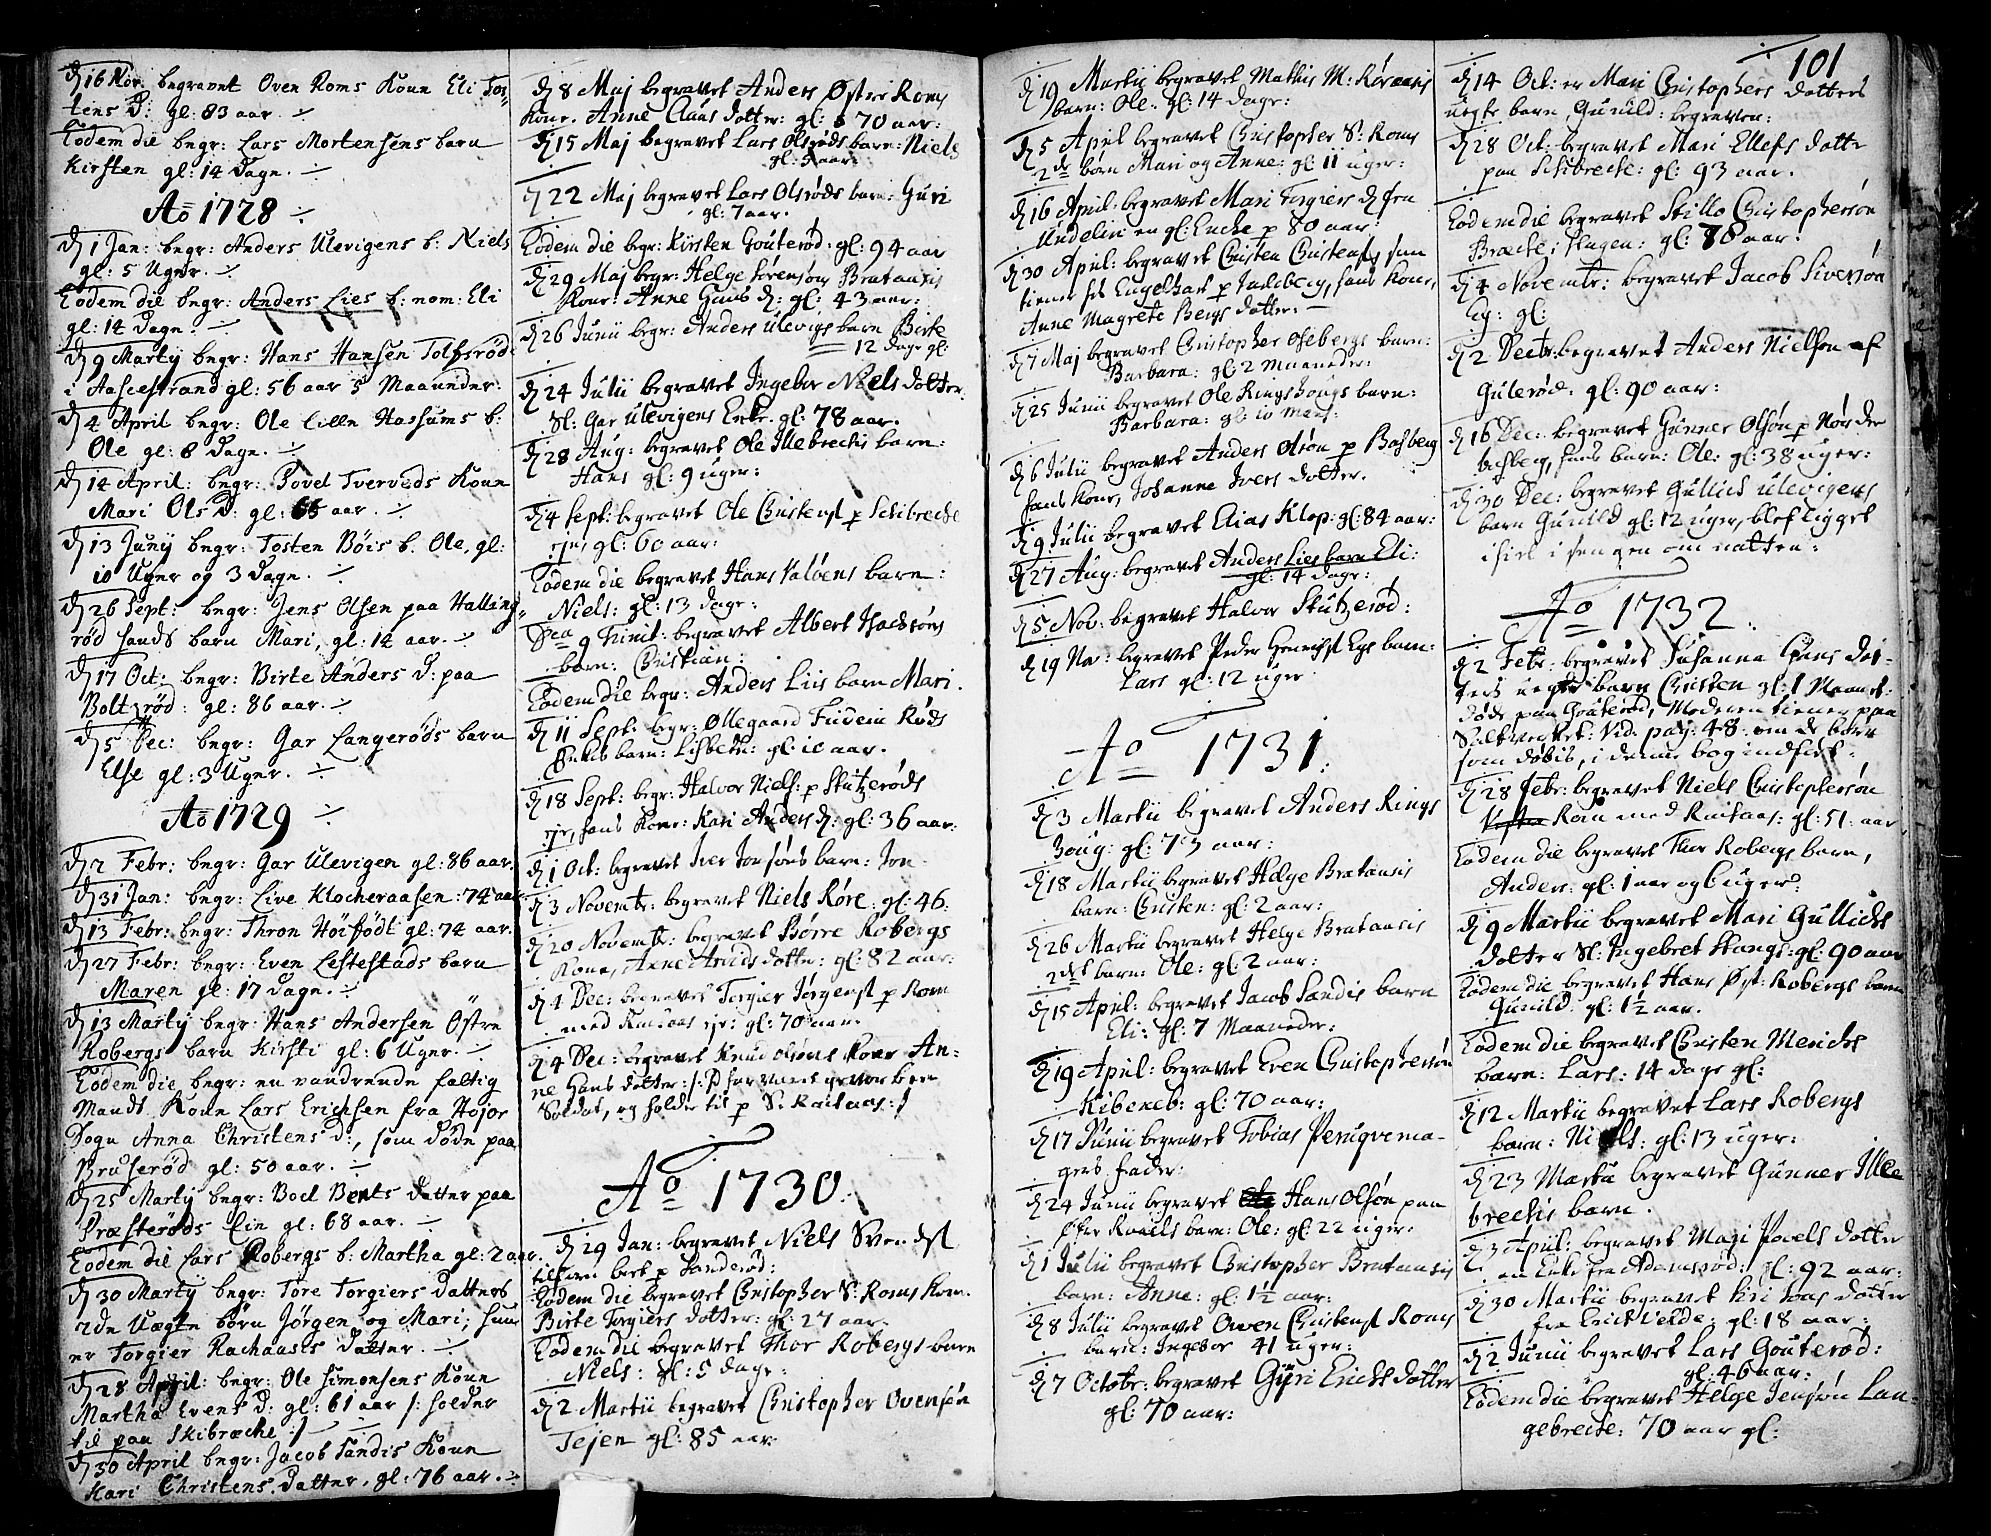 101
d 16 Nov: begravet Oven Roms Konn Eli Tos-
tens D: gl: 83 aar.
Eodem die begr: Lars Mortensens barn
Kirsten gl: 14 Dagn.
Ao 1728
d 1 Jan: begr: Anders Ulevigens b: Niels
gl: 5 Ugnr.
Eodem die begr: Anders Lies b: nom: Eli
gl: 14 Dagn.
d 9 Marty begr: Hans Hansen Tolfsrød
i Aascestrand gl: 56 aar 5 Maander:
d 4 April begr: Ole Lille Hassums b:
Ole gl: 8 Dagn.
d 14 April: begr: Povel Tverveds Konn
Mari Ols D: gl: 66 aar.
d 13 Juny begr: Tosten Bøis b. Ole, gl:
10 Ugnr og 3 Dagn.
d 26 Sept: begr: Jens Olsen paa Halling-
rød hands barn Mari, gl: 14 aar.
d 17 Oct: begr: Birte Anders D: paa
Boltzrød: gl: 86 aar.
d 5 Dec: begr: Gar Langerøds barn
Else gl: 3 Ugnr.
Ao 1729
d 2 Febr: begr: Gar Ulevigen gl: 86 aar.
d 31 Jan: begr: Live Klocheraasen: 74 aar
d 13 Febr: begr: Thron Hôiffødt gl: 74 aar.
d 27 Febr: begr: Even Lestestads barn
Maren gl: 17 Dagn.
d 13 Marty begr: Hans Andersen Östre
Robergs barn Kirsti gl: 6 Ugnr.
Eodem die begr: en vandrende fattig
Mands Konn Lars Erichsen fra Hojor
Sogn Anna Christens D:, som døde paa
Bruserød gl: 50 aar.
d 25 Marty begr: Boel Bents datter paa
Præsterøds Lin gl: 68 aar.
Eodem die Lars Robergs b: Martha gl: 2 aar.
d 30 Marty begr: Tore Torgiers Datters
2de Uægte børn Jørgen og Mari; hun
er Torgier Rachaases datter.
d 28 April: begr: Ole Simonsens Konn
Martha Evens D: gl: 61 aar /: holder
til paa Skibræche :/
d 30 April begr: Jacob Sandis Konn
Kari Christens Datter, gl: 76 aar.
d 8 Maj begravet Anders Østre Roms
Kone. Anne Claus dotter: gl: 70 aar:
d 15 Maj begravet Lars Olsrøds barn: Niels
gl: 9 aar:
d 22 Maj begravet Lars Olsrøds barn: Guri
gl: 7 aar.
Eodem die begr: Kirsten Gouterød: gl: 94 aar
d 29 Maj begr: Helge Sørensøns Bratausis
Kone: Anne Hans d: gl: 43 aar:
d 26 Junii begr: Anders Ulevigs barn Birte
12 dage gl:
d 24 Julii begravet Ingebor Niels dotter
Sl: Gar Ulevigens Enke. gl: 78 aar.
d 28 Aug: begravet Ole Illebrechis barn:
Hans gl: 9 uger:
d 4 Sept: begravet Ole Christens: p Schibreche
eje, gl: 60 aar:
Eodem die begravet Hans Valøens barn:
Niels: gl: 13 dage:
Dca 9 Trinit: begravet Albert Isachsøns
barn: Christian:
Eodem die begr: Anders Liis barn Mari.
d 11 Sept: begr: Øllegaard Findein Røds
Enkis barn: Lisbeth: gl: 10 aar.
d 18 Sept: begr: Halvor Niels: p Skitzerøds
eje, hans Kone: Kari Anders d: gl: 36 aar:
d 1 Oct: begravet Iver Jonsøns barn: Jon.
d 3 Novembr: begravet Niels Røre: gl: 46:
d 20 Novembr: begravet Børre Robergs
Kone, Anne Arvids dotter: gl: 82 aar:
d 4 Dec: begravet Torgier Jørgens: p Rom
med Raesaas eje: gl: 70 aar.
d 4 Dec: begravet Knud Olsøns Kone An-
ne Hans dotter: /: D har været geworben
Soldat, og holder til p S: Raesaas: /
Ao 1730
d 29 Jan: begravet Niels Svends:
tilforn boet p Sanderød:
Eodem die begravet Christopher S: Roms Kone.
Birte Torgiers dotter: gl: 27 aar.
Eodem die begravet Thor Robergs barn
Niels: gl: 5 dage:
d 2 Martii begravet Christopher Ovensøn
Tejen gl: 85 aar
d 19 Martii begravet Mathis M: Røraasis
barn: Ole: gl: 14 dage:
d 5 April begravet Christopher S: Roms
2de børn Mari og Anne: gl: 11 uger:
d 16 April: begravet Mari Torgiers d fra
Undelin en gl: Encke p 80 aar:
d 30 April: begravet Christen Christens: som
tiener hos Engelhart p Jarlsberg, hans Kone,
Anne Magrete Bergs dotter:
d 7 Maj begravet Christopher Osebergs barn:
Barbara: gl: 2 Maaneder:
d 25 Junii begravet Ole Ringshougs barn:
Barbara: gl: 10 Maan:
d 6 Julii begravet Anders Olsøn p Basberg
hans Kone, Johanne Ivers dotter.
d 9 Julii begravet Elias Klop: gl: 84 aar:
d 27 Aug: begravet Anders Lies barn Eli:
gl: 14 dage:
d 5 Nov: begravet Halvor Skitzerød:
d 19 Nov: begravet Peder Henrichs: Eys barn:
Lars gl: 12 uger
Ao 1731:
d 3 Martii begravet Anders Rings
houg: gl: 73 aar:
d 18 Martii begravet Helge Bratausis
barn: Christen: gl: 2 aar:
d 26 Martii begravet Helge Bratausis
2det barn: Ole: gl: 2 aar:
d 15 April: begravet Jacob Sandis barn
Eli: gl: 7 Maaneder:
d 19 April: begravet Even Christophersøn
Kibeneb: gl: 70 aar:
d 17 Junii begravet Tobias Peruqvema-
gers fader:
d 24 Junii begravet Hans Olsøn paa
Øfre Raaels barn: Ole: gl: 22 uger:
d 1 Julii begravet Christopher Bratausis
barn: Anne: gl: 1½ aar:
d 8 Julii begravet Owen Christens: Roms
barn: Ingebor 41 uger:
d 7 Octobr: begravet Gyri Erichs dotter
gl: 70 aar:
d 14 Oct: er Mari Christophers dotters
uegte barn, Gunild: begraven:
d 28 Oct: begravet Mari Ellefs dotter
paa Schibreche: gl: 93 aar.
Eodem die begravet Stillo Christophersøn
Breche i Slagen: gl: 78 aar:
d 4 Novembr: begravet Jacob Siversøn
Ey: gl:
d 2 Decbr: begravet Anders Nielsøn af
Gulerød: gl: 90 aar:
d 16 Dec: begravet Gunner Olsøn p Nordre
basberg, hans barn: Ole: gl: 38 uger:
d 30 Dec: begravet Gullich Ulevigens
barn Gunild gl: 12 uger, blef ligget
ihiel i sengen om natten:
Ao 1732
d 2 Febr: begravet Susanna Hans dot-
ters uegte barn Christen gl: 1 Maaned:
døde paa Gouterød, Moderen tiener paa
Saltværket: Vid. pag: 48. om de børn
som døbis, i denne bog indført:
d 28 Febr: begravet Niels Christophersøn
Rom med Raesaas: gl: 51: aar
Eodem die begravet Thor Robergs barn,
Anders: gl: 1 aar og 6 uger:
d 9 Martii begravet Mari Gullichs
dotter Sl: Ingebret Stangs: gl: 90 aar
Eodem die begravet Hans Øst: Robergs barn
Gunild gl: 1½ aar.
Eodem die begravet Christen Meriches
barn: Lars: 14 dage gl:
d 12 Martii begravet Lars Robergs
barn: Niels: gl: 13 uger:
d 23 Martii begravet Gunner Ille
brechis barn.
d 3 April: begravet Mari Povels dotter
en Enke fra Adamsrød: gl: 92 aar:
d 30 Martii begravet dotter
fra gl: 18 aar:
d 2 Junii begravet Lars Gouterød:
gl: 46 aar:
Eodem die begravet Helge Jensøn Lan-
gebreche: 70 aar gl: